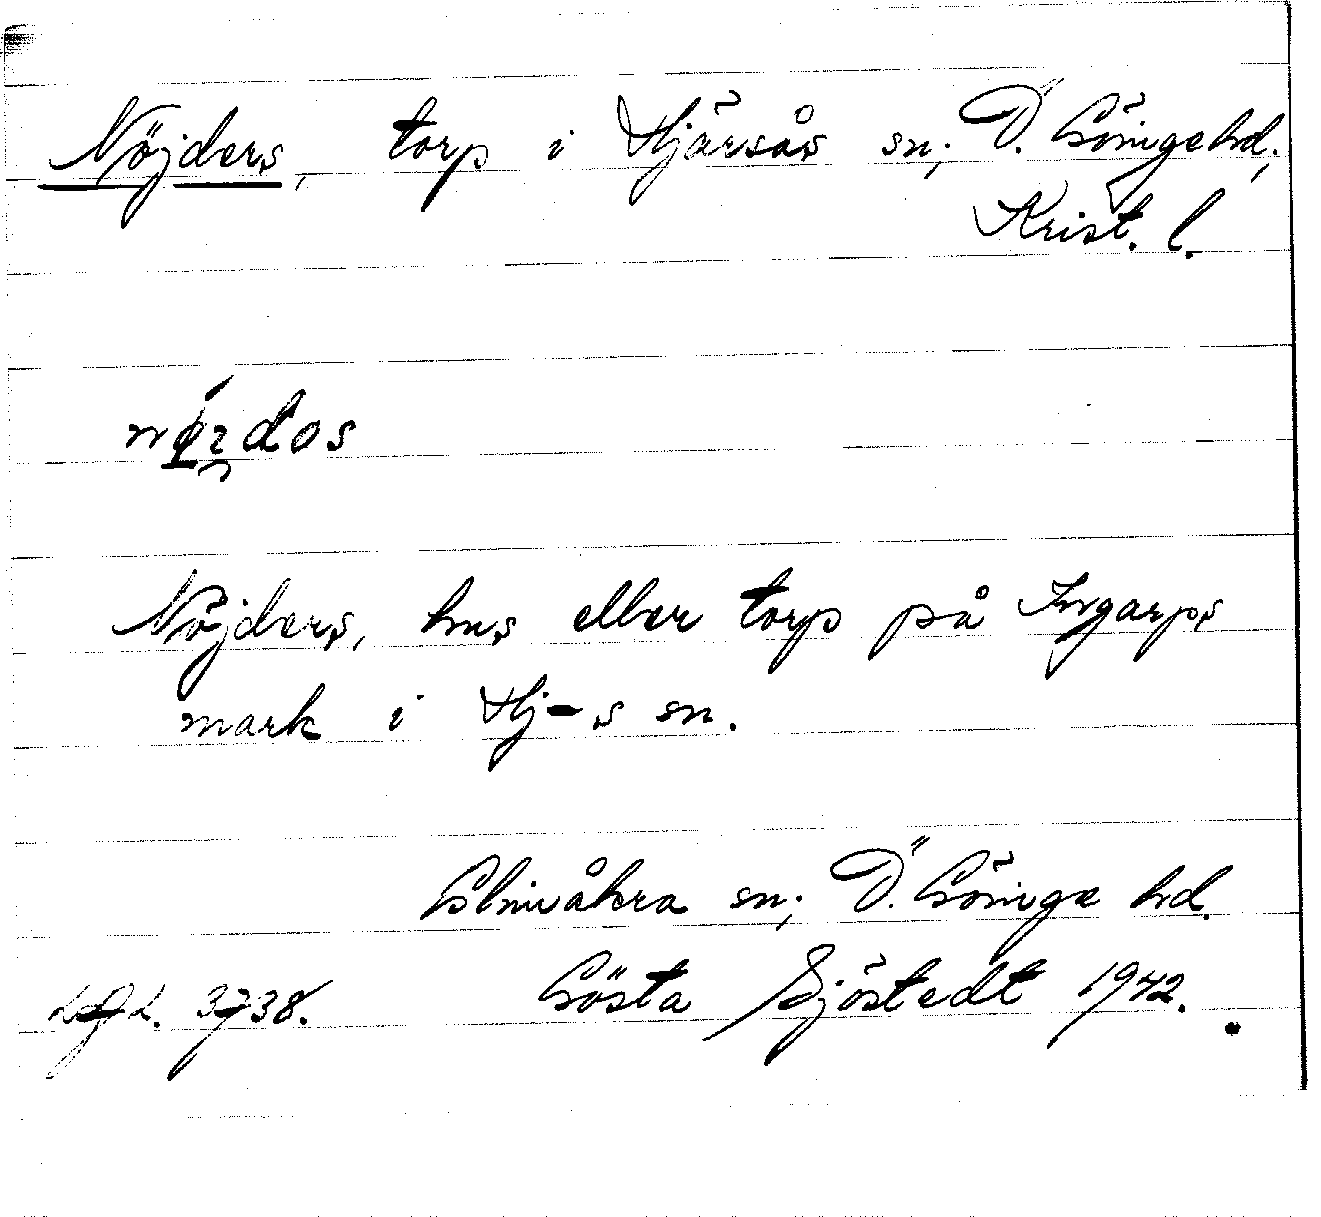 Nöjders, torp i Hjärsås sn; Ö. Göinge hd;
Krist. l.
Nöjders, hus eller torp på Ingarps
mark i Hj-s sn.
Glimåkra sn; Ö. Göinge hd.
Lgd. 3738. Gösta Sjöstedt 1942.